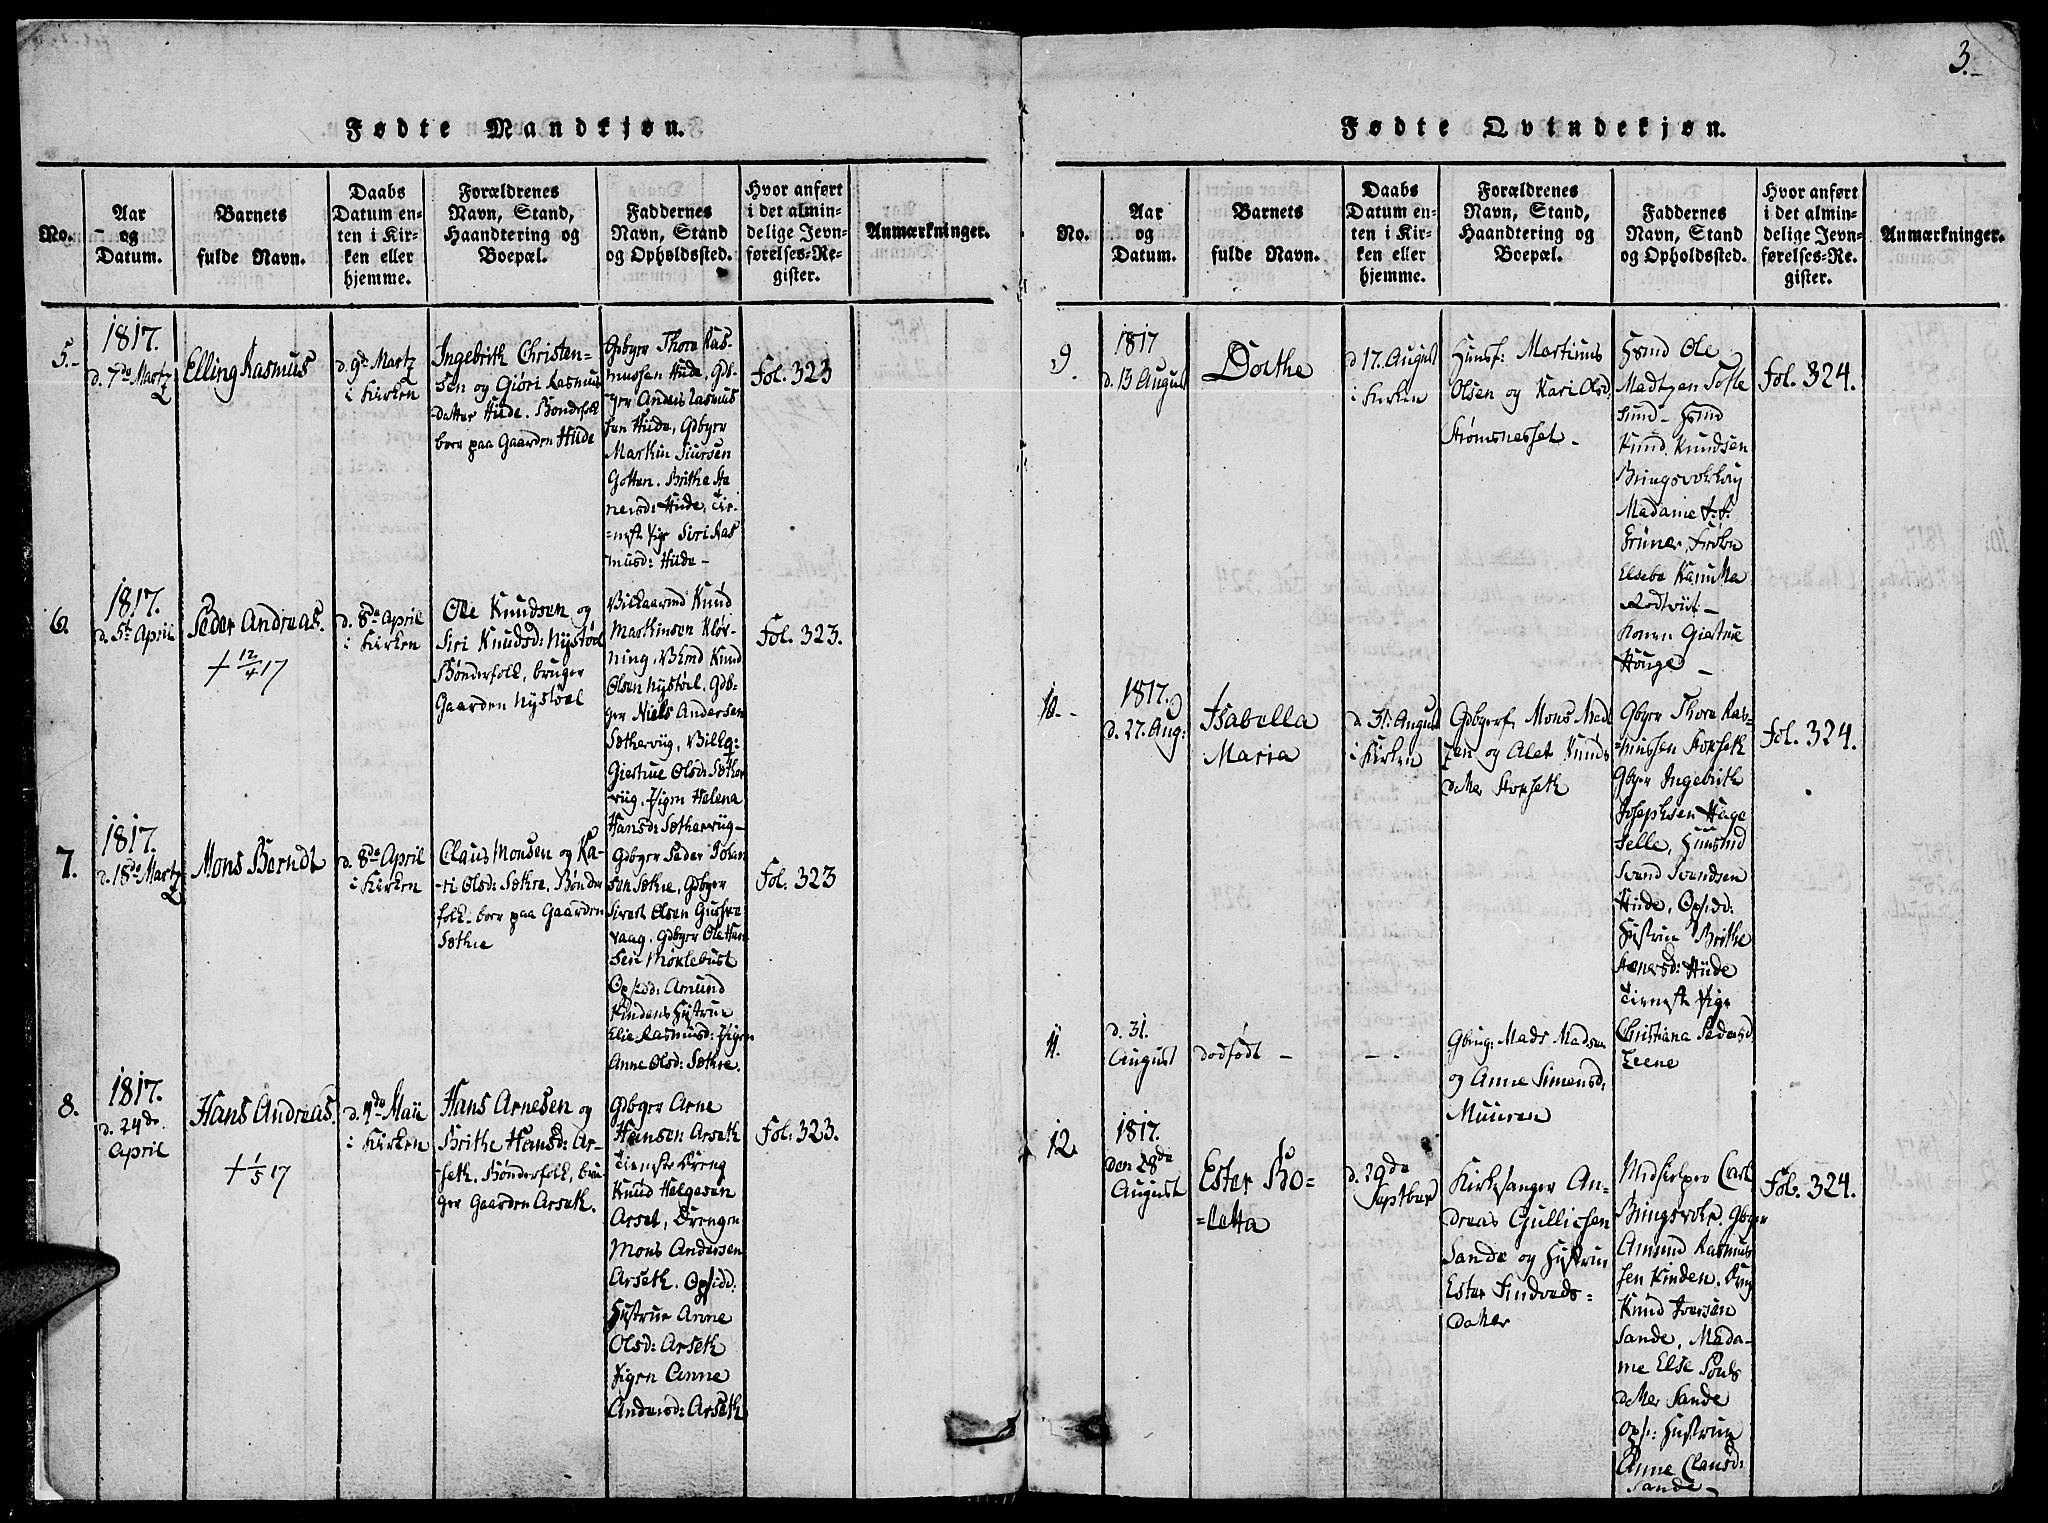 3.
Fødte Mandkjøn.
No.
Aar
og
Datum.
Barnets
fulde Navn.
Daabs
Datum en-
ten i Kir-
ken eller
hjemme.
Forældrenes
Navn, Stand,
Haandtering og
Boepæl.
Faddernes
Navn, Stand
og Opholdssted.
Hvor anført
i det almin-
delige Jevn-
førelses-Re-
gister.
Anmærkninger.
5.-
1817.
d. 7de Martz
Elling Rasmus
d. 9de Martz
i Kirken
Ingebrith Christen-
sen og Giøri Rasmus
datter Hide. Bondefolk
boer paa Gaarden Hide
Gdbyer Thore Ras-
mussen Hide, Gdb-
yer Anders Rasmus
sen Hide, Gdbyer
Martin Siursen
Gotten. Brithe Ste
nersd: Hide, Tie-
=neste Pige Siri Ras
musd: Hide -
Fol. 323
6.
1817.
d. 5te April
Peder Andreas.
+ 12/4 17
d. 8de April
i Kirken
Ole Knudsen og
Siri Knudsd: Nystøel
Bønderfolk, bruger
Gaarden Nystøel
Knud
Martinsen Kløv-
ning, Knud
Olsen Nystøel, Gdb-
ger Niels Andersen
Sætherviig,
Giertrue Olsd: Sæther
viig, Pigen Helena
Hansd: Sætherviig -
Fol. 323.
7.
1817.
d. 18de Martz
Mons Berndt
d. 8de April
i Kirken
Claus Monsen og Ka-
-ri Olsd: Sæthre, Bønder
folk. boer paa Gaarden
Sæthre
Gdbyer Peder Johan
sen Sæthre, Gdbyer
Sivert Olsen Gushre
vaag. Gdbyer Ole Han
sen Moxlebust
Opsidd: Amund
Kindens Hustrue
Elie Rasmusd: Pigen
Anne Olsd: Sæthre.
Fol. 323
8.
1817.
d. 24de
April
Hans Andreas.
+ 1/5 17
d. 4de Maii
i Kirken
Hans Arnesen og
Brithe Hansd: Ar-
-seth. Bønderfolk, bru-
ger Gaarden Arseth.
Gdbyer Arne
Hansen Arseth
Tieneste Dreng
Knud Helgesen
Arset, Drengen
Mons Andersen
Arseth. Opsidd:
Hustrue Anne
Olsd: Arseth
Pigen Anne
Andersd: Arseth
Fol: 323.
Fødte Qvindekjøn.
No.
Aar
og
Datum.
Barnets
fulde Navn.
Daabs
Datum en-
ten i Kir-
ken eller
hjemme.
Forældrenes
Navn, Stand,
Haandtering og
Boepæl.
Faddernes
Navn, Stand
og Opholdssted.
Hvor anført
i det almin-
delige Jevn-
førelses-Re-
gister.
Anmærkninger.
9.
1817
d. 13 August
Dorthe
d 17. August
i Kirken
Huusf: Martinus
Olsen og Kari Olsd
Strømsnesset -
Ole
Madtzen Tofte
sund -
Knud Knudsen
Madame
Grüner, Frøken
Elsebe
Konen Giertrue
Fol. 324.
10. -
1817.
d. 27. Aug:
Isabella
Maria
d. 31. August
i Kirken
Gdbyerf. Mons Mad
zen og Alet Knuds
datter Storseth
Gbyer Thore Ras=
=mussen Storseth
Gbyer Ingebrith
Josephsen Hage
selle, Huusmd
Svend Svendsen
Hide, Opsidd:
Hustrue Brithe
Stenersd: Hide
Tieneste Pige
Christiana Pedersd
Leene
Fol. 324.
11.
d. 31.
August
dødfødt -
- - .
Gbrug: Mads Madsen
og Anne Simensd:
Muuren
12
1817.
den 28de
August
Ester Bo=
=letta
d. 29de
Septber
Kirkesanger An-
dreas Gullichsen
Sande og Hustrue
Ester Sindvads=
datter
Carl
Bringsvohr. Gbyer
Amund Rasmus
sen Kinden. Dreng
Knud Iversen
Sande, Mada-
me Else Pouls
datter Sande
Ops: Hustrue
Anne Clausd:
Sande -
Fol. 324.